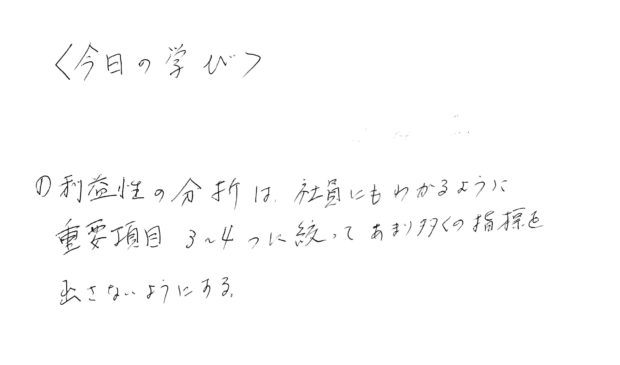 〈今日の学び〉
① 利益性の分析は、社員にもわかるように
重要項目 3~4つに絞って あまり多くの指標を
出さないようにする。